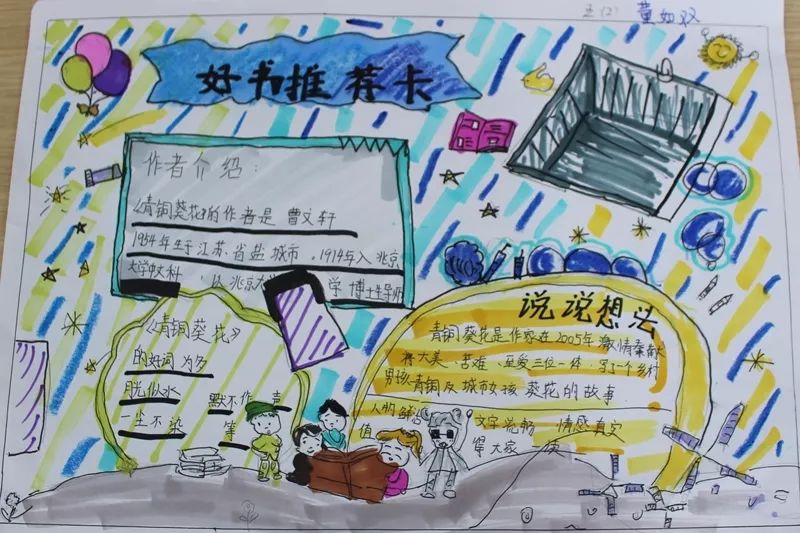 五(2) 董如双
好书推荐卡
作者介绍:
《青铜葵花》的作者是 曹文轩
1954年生于江苏省盐城市。1974年入北京
大学中文科
北京大 学博士生导师
《青铜葵花》
的好词为多
胱似水
默不作声
一尘不染 等
说说想法
青铜葵花是作家在2005年激情奉献
将大美 苦难、至爱三位一体,写了一个乡村
男孩青铜及城市女孩 葵花的故事
人物 文字流畅 情感真实
值 得大家 读